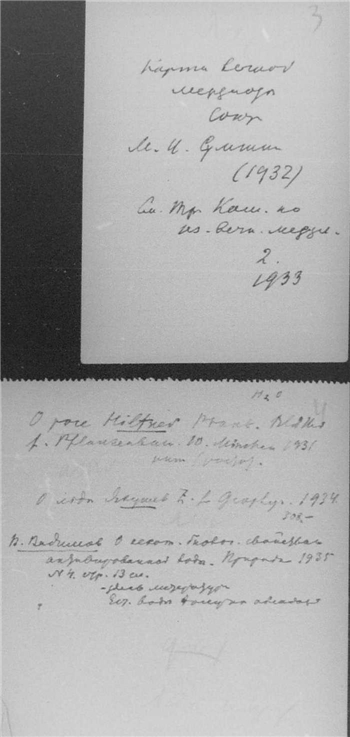 3
Карта вечной
мерзлоты
Союз
М. И. Сумгин
(1932)
См. Тр. Ком. по
из. вечн. мерзл.
2.
1933
H₂O
4
О росе Hiltner Prakt. Blätter
f. Pflanzenbau. 10. München 193
О льде Z. f. Geophys. 1934.
308–
В. Вадимов О некот. биолог. свойствах
активированной воды. Природа 1935
N 4. стр. 13 сл.
Ест. вода